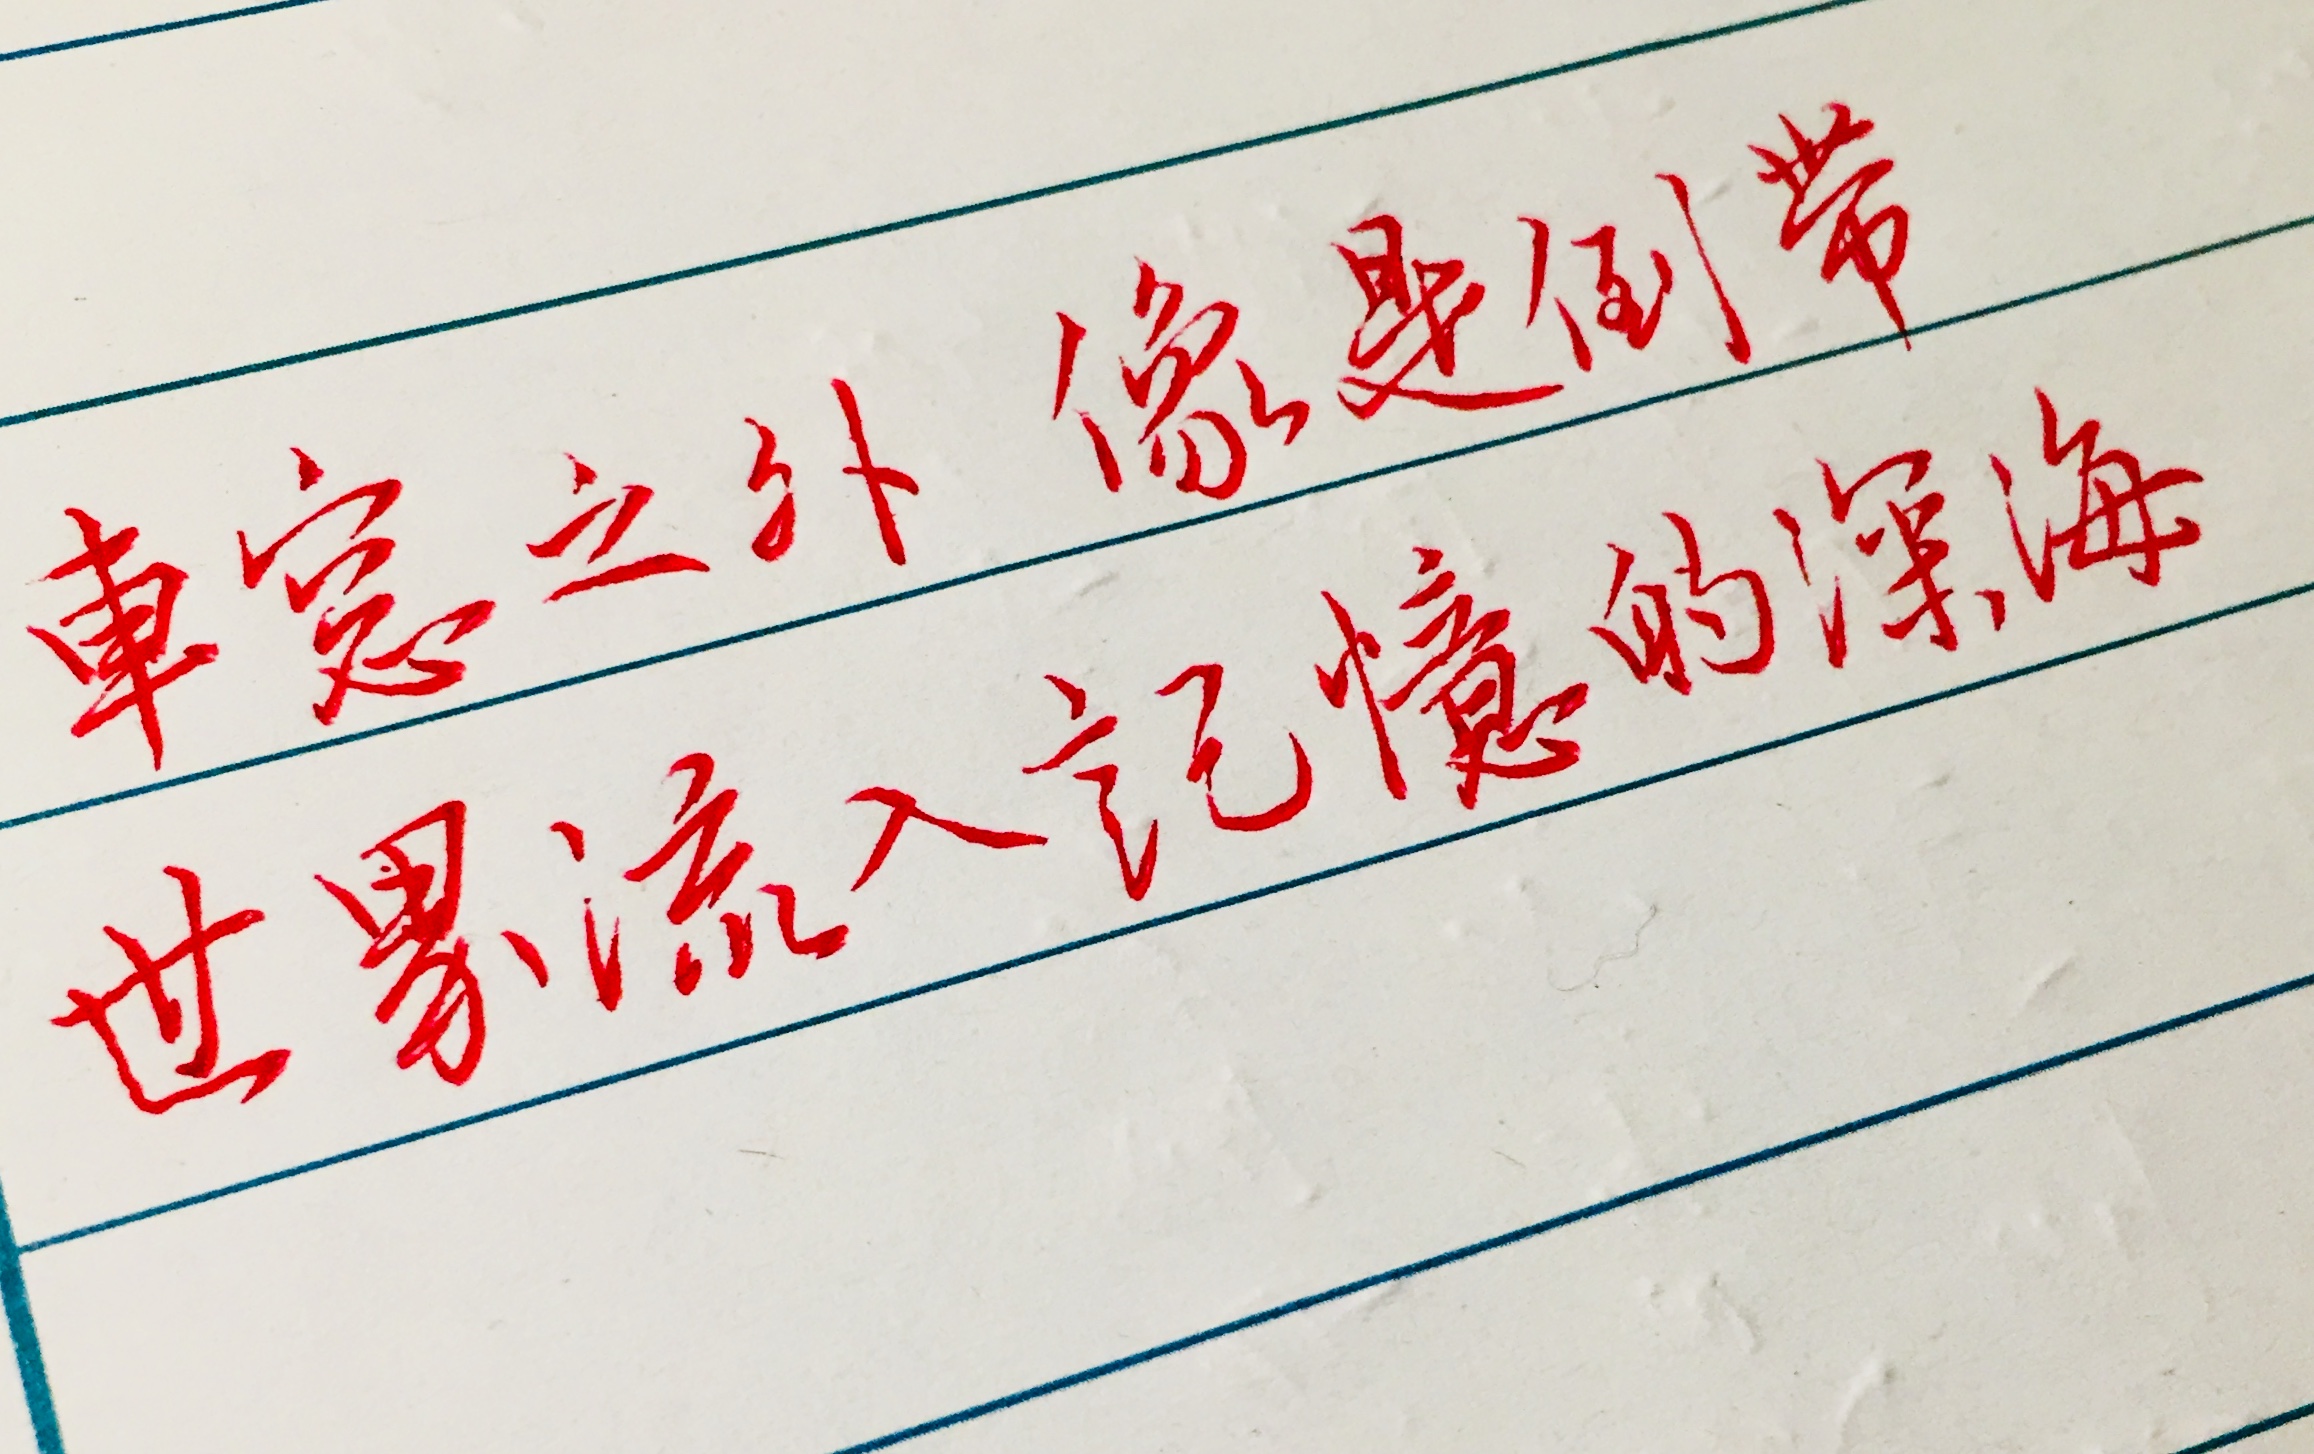 車窓之外 像是倒帶
世界流入記憶的深海